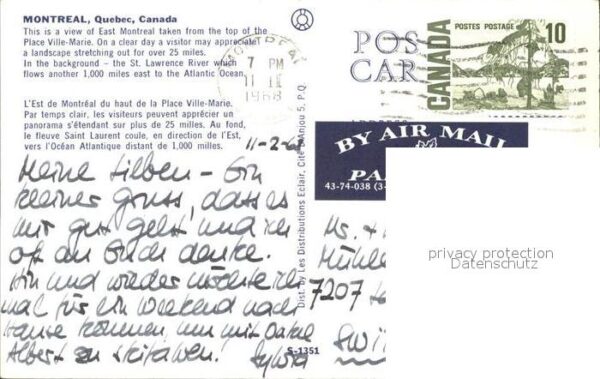 MONTREAL, Quebec, Canada
This is a view of East Montreal taken from the top of the
Place Ville-Marie. On a clear day a visitor may appreciate
a landscape stretching out for over 25 miles.
In the background - the St. Lawrence River which
flows another 1,000 miles east to the Atlantic Ocean.
L'Est de Montréal du haut de la Place Ville-Marie.
Par temps clair, les visiteurs peuvent apprécier un
panorama s'étendant sur plus de 25 miles. Au fond,
le fleuve Saint Laurent coule, en direction de l'Est,
vers l'Océan Atlantique distant de 1,000 miles.
11-2-68
Meine Lieben - Ein
kleiner Gruss, dass es
mir gut geht und ich
oft an Euch denke.
Hin und wieder möchte ich
mal für ein Weekend nach
Hause können, um mit Onkel
Albert zu skifahren!
Sylvia
S-1351
Dist. by Les Distributions Eclair, Cité d'Anjou 5, P.Q.
MONTREAL
7 PM
11 II
1968
POS
CAR
POSTES POSTAGE
10
CANADA
BY AIR MAIL
PA
43-74-038 (3-
Mühle
7207
SWI
privacy protection
Datenschutz